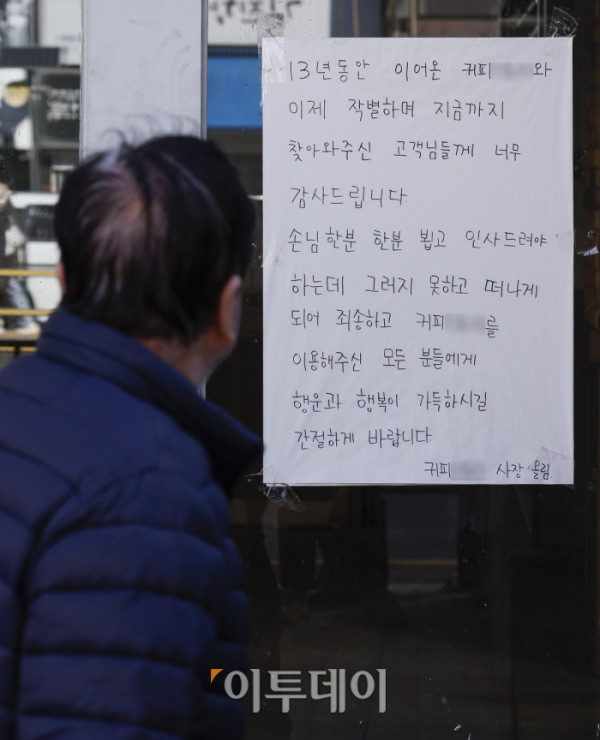 13년동안 이어온 커피 와
이제 작별하며 지금까지
찾아와주신 고객님들께 너무
감사드립니다
손님 한분 한분 뵙고 인사드려야
하는데 그러지 못하고 떠나게
되어 죄송하고 커피 를
이용해주신 모든 분들에게
행운과 행복이 가득하시길
간절하게 바랍니다
커피 사장 올림
이투데이